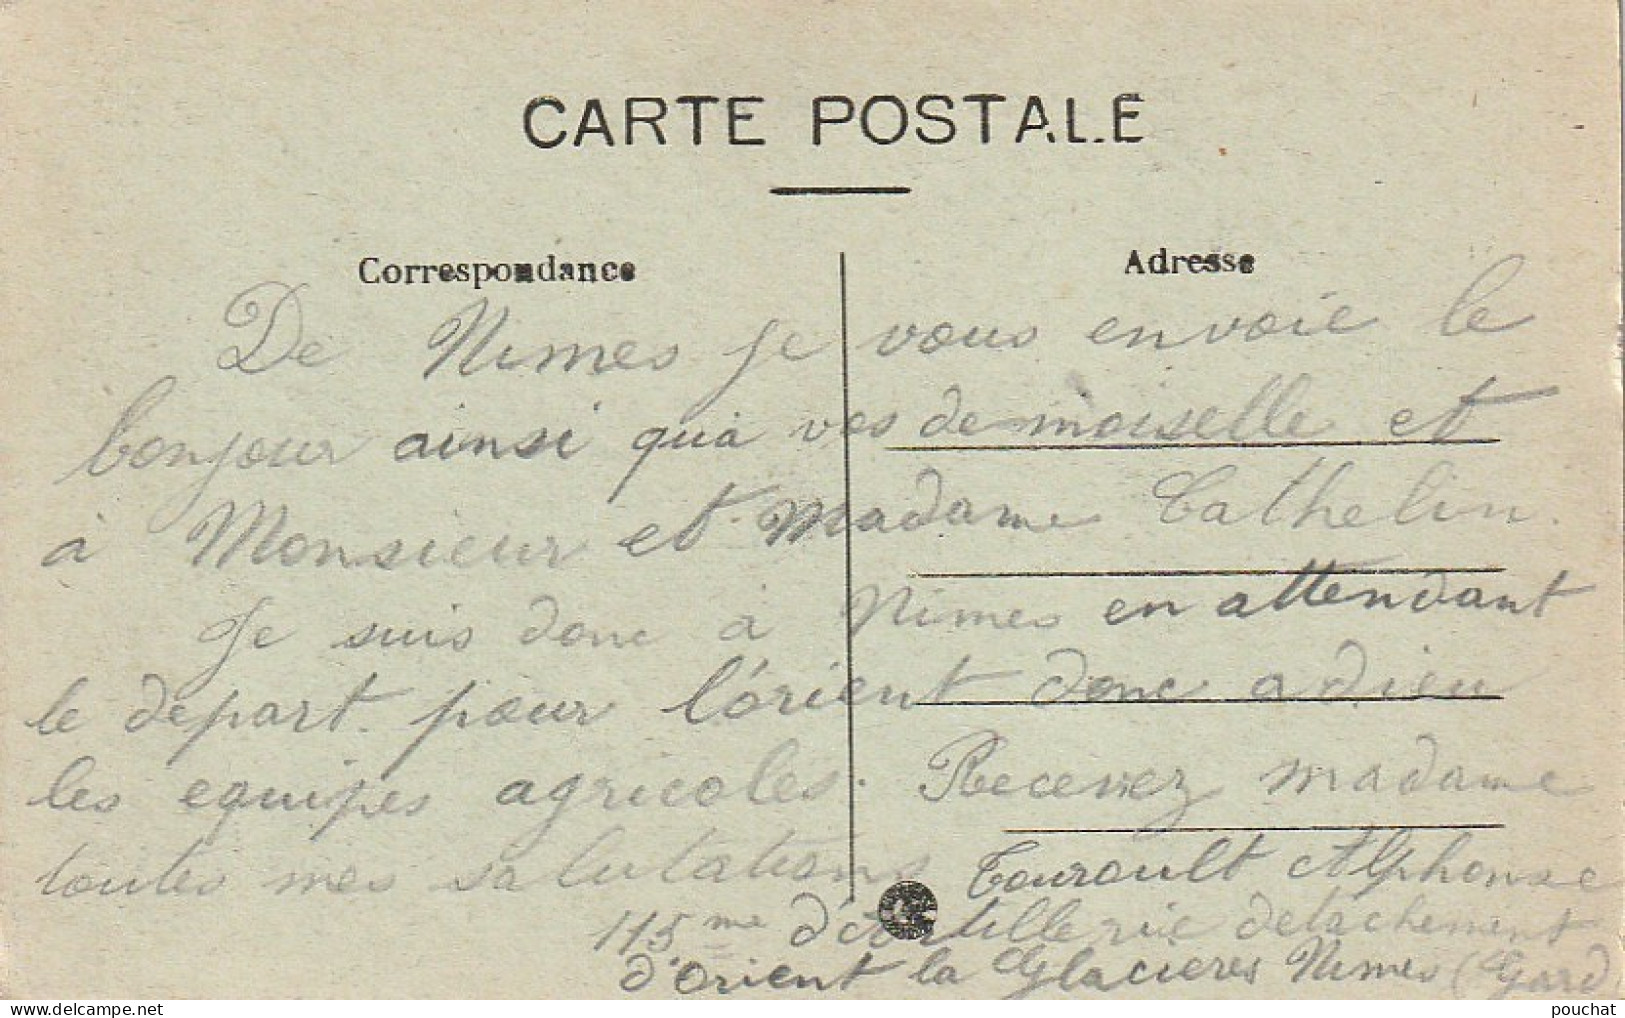 CARTE POSTALE
Correspondance
Adresse
De Nimes je vous envoie le
bonjour ainsi qua vos demoiselle et
à Monsieur et Madame Cathelin.
Je suis donc à Nimes en attendant
le depart pour l'orient donc adieu
les equipes agricoles. Recevez madame
toutes mes salutations Tourault Alphonse
115me d'artillerie detachement
d'orient la Glacieres Nimes (Gard
pouchat